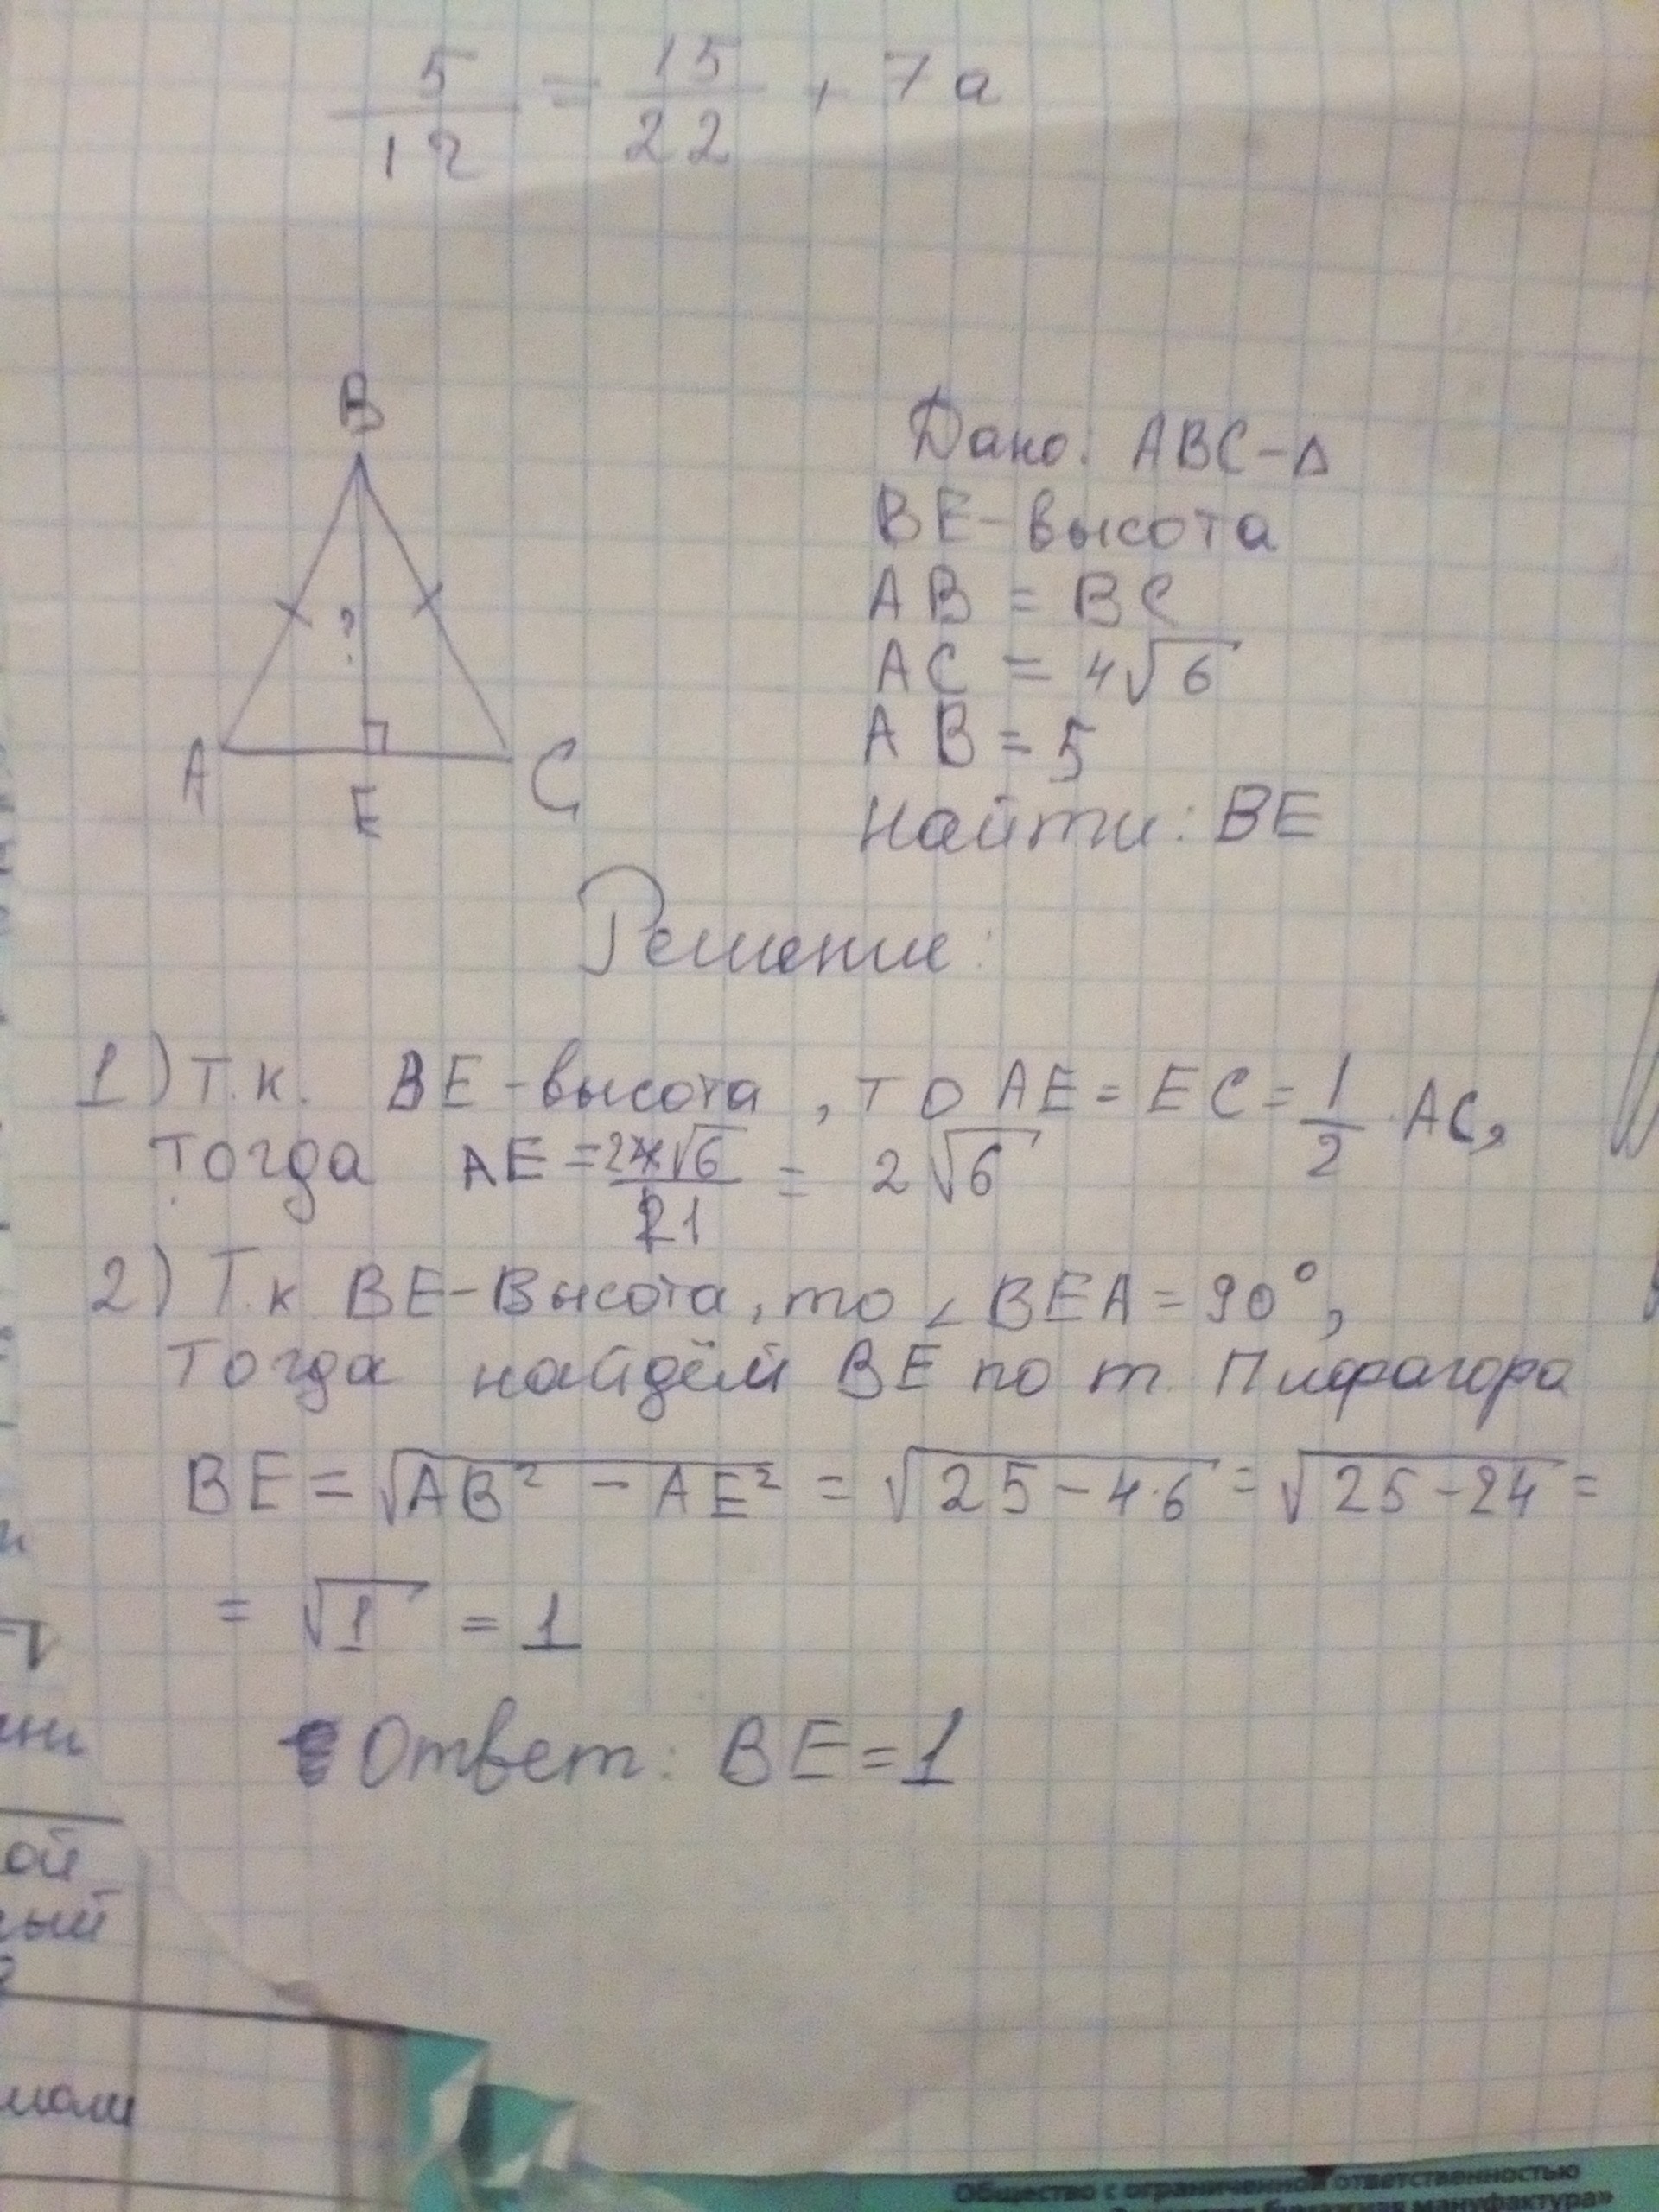 5/12 = 15/22 , 7а
B
?
A
E
C
Дано: ABC-Δ
BE-высота
AB = BC
AC = 4√6
AB = 5
Найти: BE
Решение:
1) Т.к. BE-высота, то AE = EC = 1/2 AC,
тогда AE = 24√6/21 = 2√6
2) Т.к. BE-Высота, то ∠BEA = 90°,
тогда найдём BE по т. Пифагора
BE = √AB² - AE² = √25-4·6 = √25-24 =
= √1 = 1
Ответ: BE=1
ой
ый
Общество с ограниченной ответственностью
бумажная мануфактура»